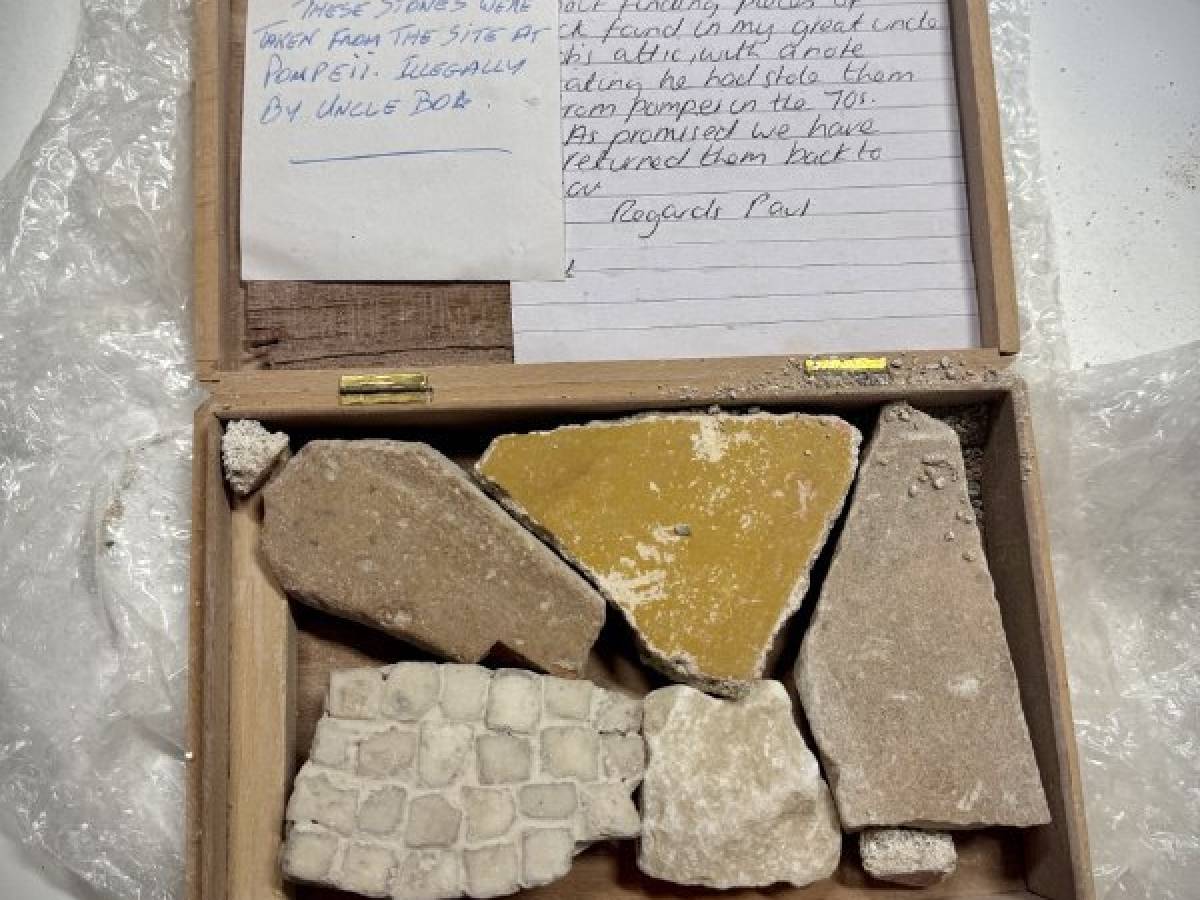 THESE STONES WERE
TAKEN FROM THE SITE AT
POMPEII. ILLEGALLY
BY UNCLE BOB.
finding pieces of
found in my great uncle
attic, with a note
he had stole them
pompei in the 70s.
As promised we have
returned them back to
Regards Paul